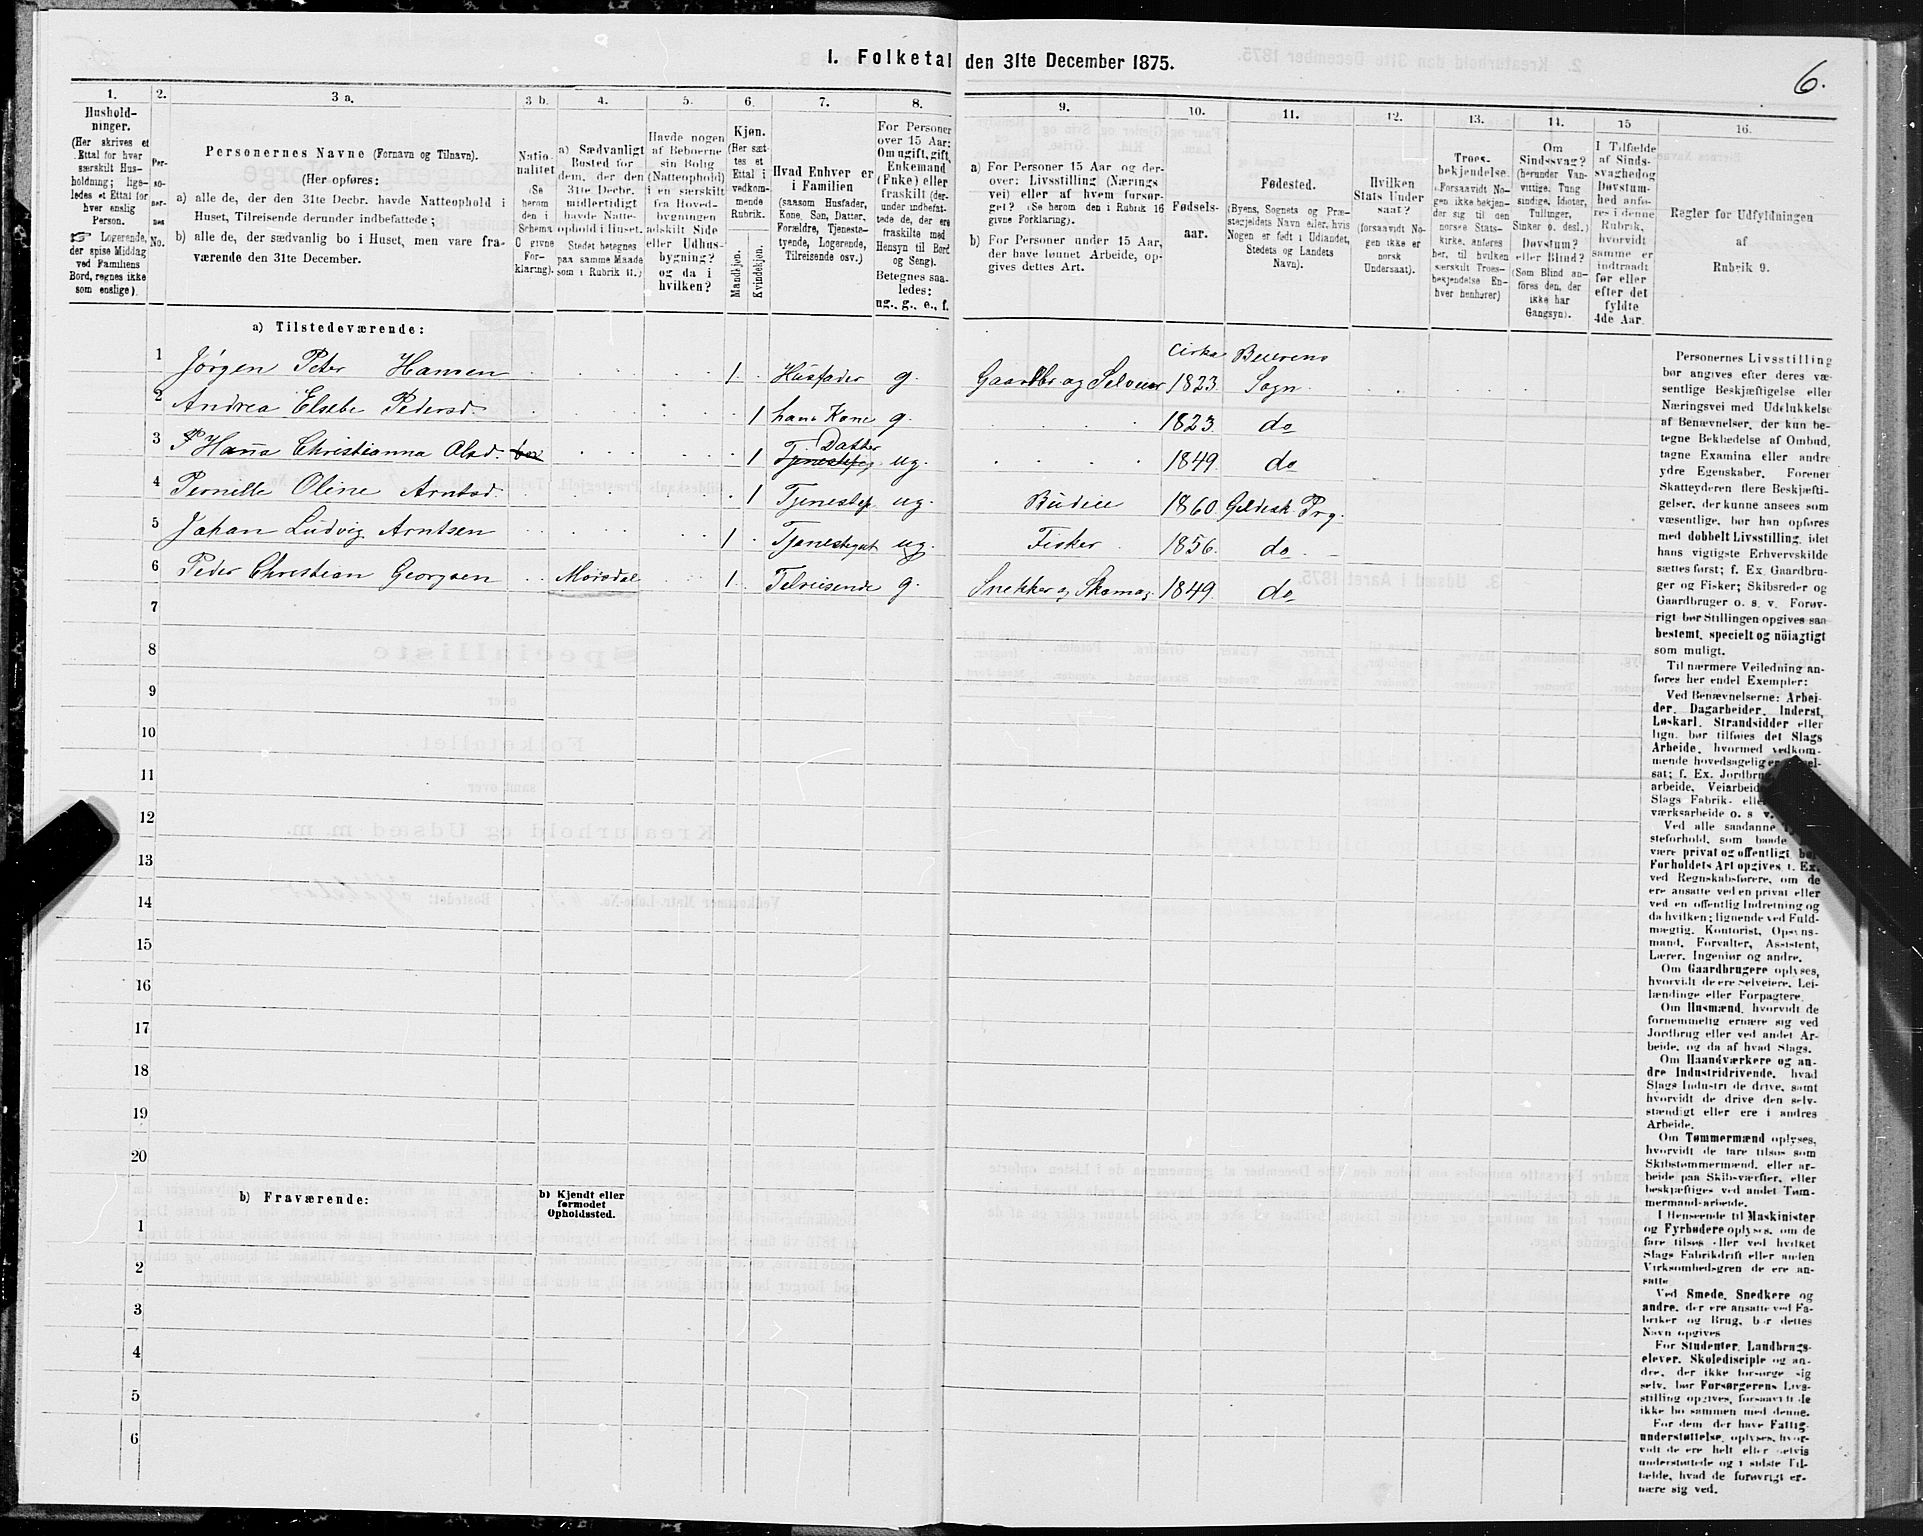 1. Folketal den 31te December 1875.
6.
1.
Hushold-
ninger.
(Her skrives et
Ettal for hver
særskilt Hus-
holdning; lige-
ledes et Ettal for
hver enslig
Person.
Logerende,
der spise Middag
ved Familiens
Bord, regnes ikke
som enslige).
2.
Per-
so-
ner-
nes
No.
3 a.
Personernes Navne (Fornavn og Tilnavn).
(Her opføres:
a) alle de, der den 31te Decbr. havde Natteophold i
Huset, Tilreisende derunder indbefattede;
b) alle de, der sædvanlig bo i Huset, men vare fra-
værende den 31te December.
3 b.
Natio-
nalitet
(Se
herom
den i
Schema
C givne
For-
klaring).
4.
a) Sædvanligt
Bosted for
dem, der den
31te Decbr.
midlertidigt
havde Natte-
ophold i Huset.
Stedet betegnes
paa samme Maade
som i Rubrik 11.)
5.
Havde nogen
af Beboerne
sin Bolig
(Natteophold)
i en særskilt
fra Hoved-
bygningen
adskilt Side
eller Udhus-
bygning?
og da i
hvilken?
6.
Kjøn.
(Her sæt-
tes et
Ettal i
vedkom-
mende
Rubrik.
Mandkjøn.
Kvindekjøn.
7.
Hvad Enhver er
i Familien
(saasom Husfader,
Kone, Søn, Datter,
Forældre, Tjeneste-
tyende, Logerende,
Tilreisende osv.)
8.
For Personer
over 15 Aar:
Om ugift, gift,
Enkemand
(Enke) eller
fraskilt (der-
under indbefat-
tede de, der ere
fraskilte med
Hensyn til Bord
og Seng).
Betegnes saa-
ledes:
ug., g., e., f.
9.
a) For Personer 15 Aar og der-
over: Livsstilling (Nærings-
vei) eller af hvem forsør-
get? (Se herom den i Rubrik 16
givne Forklaring).
b) For Personer under 15 Aar,
der have lønnet Arbeide, op-
gives dettes Art.
10.
Fødsels-
aar.
11.
Fødested.
(Byens, Sognets og Præ-
stegjeldets Navn eller, hvis
Nogen er født i Udlandet,
Stedets og Landets
Navn).
12.
Hvilken
Stats Under
saat?
(forsaavidt No-
gen ikke er
norsk
Undersaat).
13.
Troes-
bekjendelse.
(Forsaavidt No-
gen ikke bekjen-
der sig til den
norske Stats-
kirke, anføres
her, til hvilken
særskilt Troes-
bekjendelse En-
hver henhører)
14.
Om
Sindssvag?
(herunder Van-
vittige, Tung
sindige, Idioter,
Tullinger,
Sinker o. desl.)
Døvstum?
eller Blind?
(Som Blind an-
føres den, der
ikke har
Gangsyn).
15
I Tilfælde
af Sinds-
svaghed og
Døvstum-
hed anfø-
res i denne
Rubrik,
hvorvidt
samme er
indtraadt
før eller
efter det
fyldte
4de Aar.
16.
Regler for Udfyldningen
af
Rubrik 9.
a) Tilstedeværende:
1 Jørgen Peter Hansen 1 Husfader g. Gaardbr og Selveier cirka 1823 Beierens Sogn
2 Andrea Elsebe Pedersd. 1 hans Kone g. 1823 do
3 Hana Christianna Olsd. 1 Datter ug. 1849. do
4 Pernelle Oline Arntsd. 1 Tjenestep ug. Budeie 1860 Gildesk Prg.
5 Johan Ludvig Arntsen 1 Tjenestegut ug. Fisker 1856. do
6 Peder Christian Georgsen Moisdal 1 Tilreisende g. Snekker og Skomag. 1849. do
7
8
9
10
11
12
13
14
15
16
17
18
19
20
b) Fraværende:
b) Kjendt eller
formodet
Opholdssted.
1
2
3
4
5
6
Personernes Livsstilling
bør angives efter deres væ-
sentlige Beskjæftigelse eller
Næringsvei med Udelukkelse
af Benævnelser, der kun be-
tegne Beklædelse af Ombud,
tagne Examina eller andre
ydre Egenskaber. Forener
Skatteyderen flere Beskjæfti-
gelser, der kunne ansees som
væsentlige, bør han opføres
med dobbelt Livsstilling, idet
hans vigtigste Erhvervskilde
sættes først; f. Ex. Gaardbru-
ger og Fisker; Skibsreder og
Gaardbruger o. s. v. Forøv-
rigt bør Stillingen opgives saa
bestemt, specielt og nöiagtigt
som muligt.
Til nærmere Veiledning an-
føres her endel Exempler:
Ved Benævnelserne: Arbei-
der, Dagarbeider, Inderst,
Løskarl, Strandsidder eller
lign. bør tilføies det Slags
Arbeide, hvormed vedkom-
mende hovedsagelig er
sat; f. Ex. Jordbru
arbeide, Veiarbeid
Slags Fabrik- elle
værksarbeide o. s v.
Ved alle saadanne
steforhold, som baade
være privat og offentligt, bør
Forholdets Art opgives, f. Ex.
ved Regnskabsførere, om de
ere ansatte ved en privat eller
ved en offentlig Indretning og
da hvilken; lignende ved Fuld-
mægtig, Kontorist, Opsyns-
mand, Forvalter, Assistent,
Lærer, Ingeniør og andre.
Om Gaardbrugere oplyses,
hvorvidt de ere Selveiere, Lei-
lændinge eller Forpagtere.
Om Husmænd, hvorvidt de
fornemmelig ernære sig ved
Jordbrug eller ved andet Ar-
beide, og da af hvad Slags.
Om Haandværkere og an-
dre Industridrivende, hvad
Slags Industri de drive, samt
hvorvidt de drive den selv-
stændigt eller ere i andres
Arbeide.
Om Tømmermænd oplyses,
hvorvidt de fare tilsøs som
Skibstømmermænd, eller ar-
beide paa Skibsværfter, eller
beskjæftiges ved andet Tøm-
mermandsarbeide.
I Henseende til Maskinister
og Fyrbødere oplyses, om de
fare tilsøs eller ved hvilket
Slags Fabrikdrift eller anden
Virksomhedsgren de ere an-
satte
Ved Smede, Snedkere og
andre, der ere ansatte ved Fa-
briker og Brug, bør dettes
Navn opgives
For Studenter, Landbrugs-
elever, Skoledisciple og an-
dre, der ikke forsørge sig
selv, bør Forsørgerens Livs-
stilling opgives, forsaavidt de
ikke bo sammen med denne.
For dem, der have Fattig-
understøttelse, oplyses, hvor-
vidt de ere helt eller delvis
understøttede og i sidste Til-
fælde, hvad de forøvrigt er-
nære sig ved.